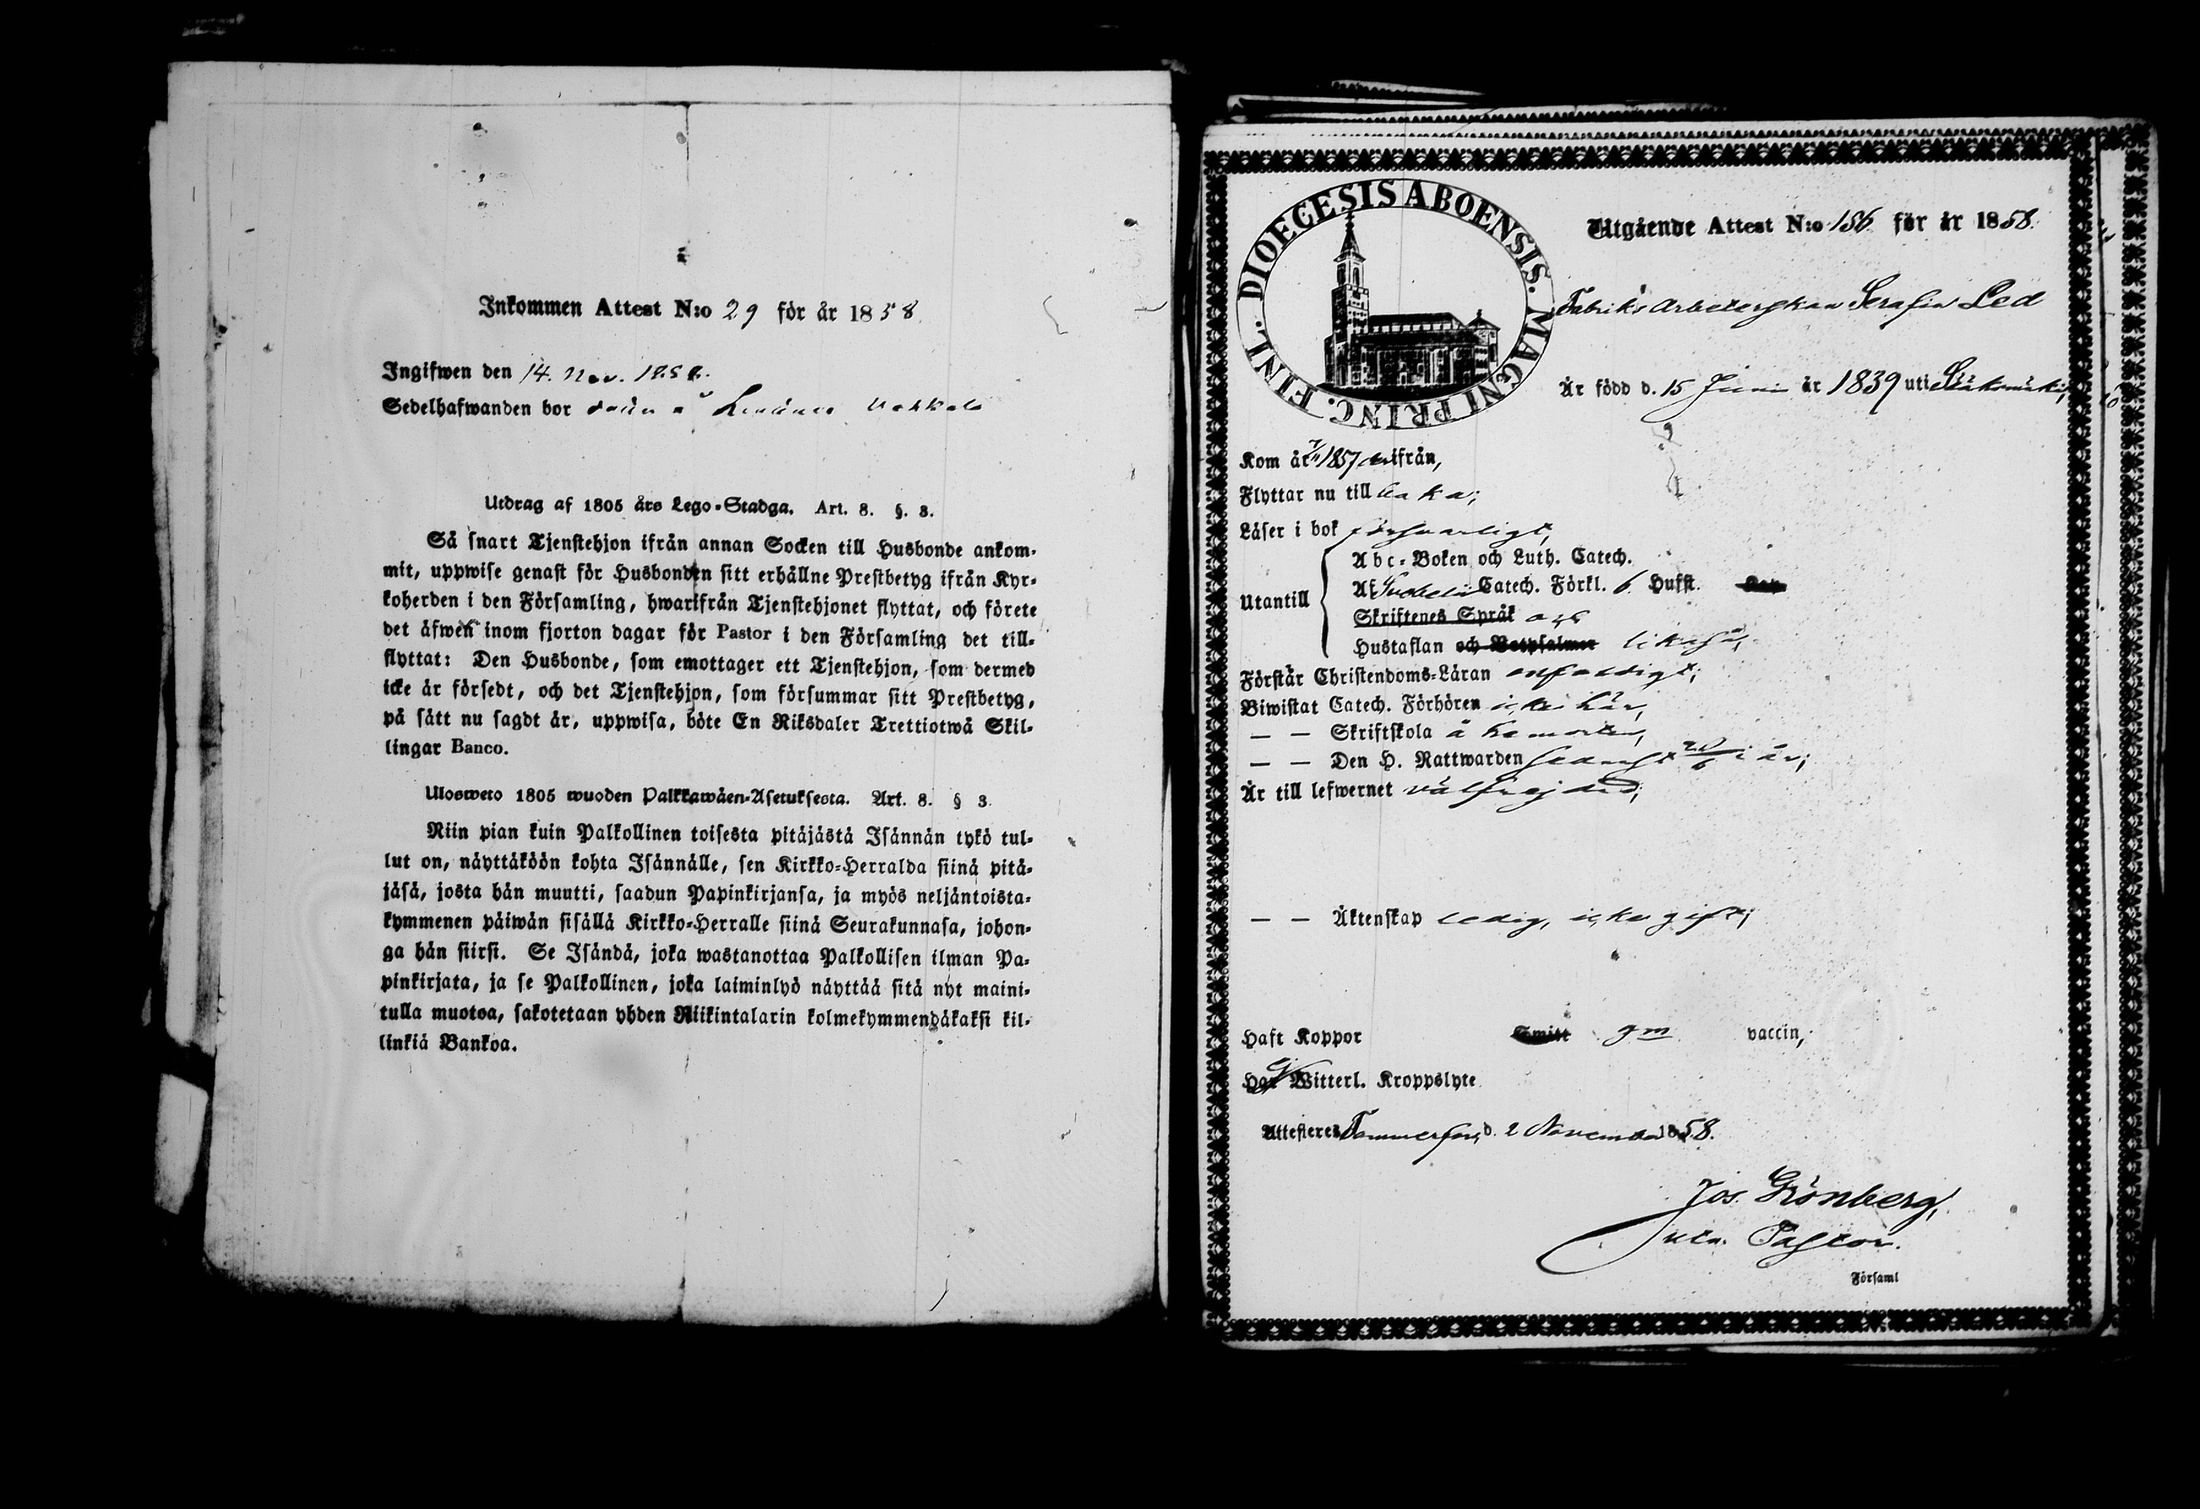 Inkommen Attest N:o 29 för år 1858
Ingifwen den 14. Nov. 1858.
Sedelhafwanden bor
Utdrag af 1805 års Lego-Stadga. Art. 8. §. 3.
Så snart Tjenstehjon ifrån annan Socken till Husbonde ankom-
mit, uppwise genast för Husbonden sitt erhållne Prestbetyg ifrån Kyr-
koherden i den Församling, hwarifrån Tjenstehjonet flyttat, och förete
det äfwen inom fjorton dagar för Pastor i den Församling det till-
flyttat: Den Husbonde, som emottager ett Tjenstehjon, som dermed
icke är försedt, och det Tjenstehjon, som försummar sitt Prestbetyg,
på sätt nu sagdt är, uppwisa, böte En Riksdaler Trettiotwå Skil-
lingar Banco.
Ulosweto 1805 wuoden Palkkawäen-Asetuksesta. Art. 8. § 3.
Niin pian kuin Palkollinen toisesta pitäjästä Isännän tykö tul-
lut on, näyttäköön kohta Isännälle, sen Kirkko-Herralda siinä pitä-
jäsä, josta hän muutti, saadun Papinkirjansa, ja myös neljäntoista-
kymmenen päiwän sisällä Kirkko-Herralle siinä Seurakunnasa, johon-
ga hän siirsi. Se Isändä, joka wastanottaa Palkollisen ilman Pa-
pinkirjata, ja se Palkollinen, joka laiminlyö näyttää sitä nyt maini-
tulla muotoa, sakotetaan yhden Riikintalarin kolmekymmendäkaksi kil-
linkiä Bankoa.
DIOECESIS ABOENSIS. MAGNI PRINC. FINL.
Utgående Attest N:o 156 för år 1858.
Fabriks Arbeterskan Serafia Led
Är född d. 15 Juni år 1839 uti
Kom år 1857 derifrån,
Flyttar nu till baka;
Läser i bok försvarligt,
Utantill
Abc-Boken och Luth. Catech.
Af Svebelii Catech. Förkl. 6 Hufst.
Skriftenes Språk
Hustaflan och Botpsalmer likaså,
Förstår Christendoms-Läran enfaldigt;
Biwistat Catech. Förhören icke här,
— — Skriftskola å hemorten,
— — Den H. Nattwarden senast 20/6 i år;
Är till lefwernet välfrejdad;
— — Äktenskap ledig, icke gift;
Haft Koppor Smitt gm vaccin,
Har Witterl. Kroppslyte
Attesteres Tammerfors, d. 2 November 1858.
Jos. Grönberg,
Pastor.
Församl